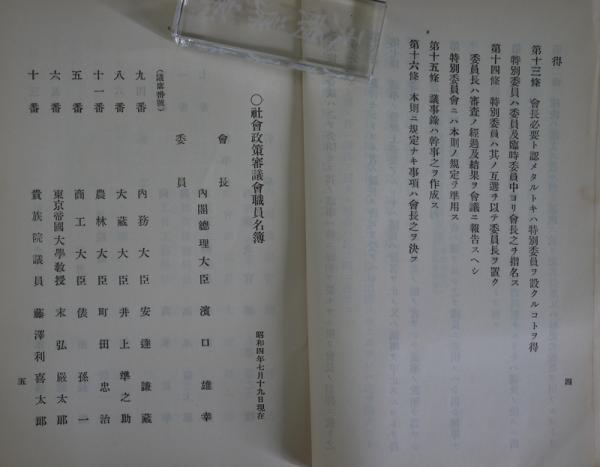 得
第十三條 會長必要ト認メタルトキハ特別委員ヲ設クルコトヲ得
特別委員ハ委員及臨時委員中ヨリ會長之ヲ指名ス
第十四條 特別委員ハ其ノ互選ヲ以テ委員長ヲ置ク
委員長ハ審査ノ經過及結果ヲ會議ニ報告スヘシ
特別委員會ニハ本則ノ規定ヲ準用ス
第十五條 議事錄ハ幹事之ヲ作成ス
第十六條 本則ニ規定ナキ事項ハ會長之ヲ決ス
四
○社會政策審議會職員名簿
昭和四年七月十九日現在
會長
內閣總理大臣 濱口雄幸
委員
(議席番號)
九四番 內務大臣 安達謙藏
八六番 大藏大臣 井上準之助
十一番 農林大臣 町田忠治
五番 商工大臣 俵孫一
六五番 東京帝國大學敎授 末弘嚴太郎
十三番 貴族院議員 藤澤利喜太郎
五